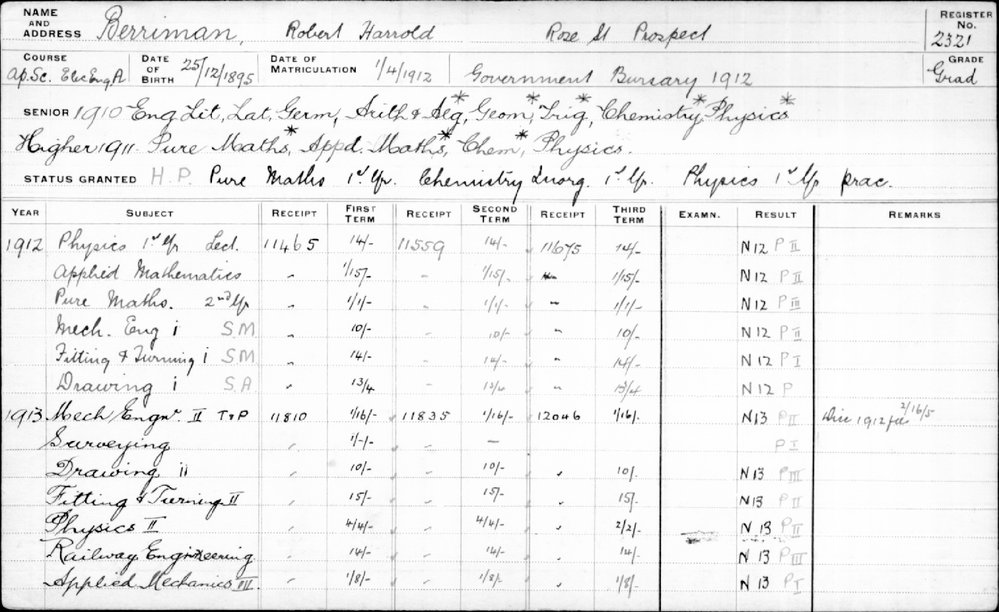 NAME AND ADDRESS Berriman, Robert Harrold Rose St Prospect REGISTER No. 2321
COURSE Ap.Sc. Elec Eng A DATE OF BIRTH 25/12/1895 DATE OF MATRICULATION 1/4/1912 Government Bursary 1912 GRADE Grad
SENIOR 1910 Eng Lit, Lat, Germ, Arith & Alg*, Geom*, Trig*, Chemistry* Physics*
Higher 1911 Pure Maths*, Appd. Maths*, Chem*, Physics.
STATUS GRANTED H.P. Pure Maths 1st Yr. Chemistry Inorg. 1st Yr. Physics 1st Yr prac.
YEAR SUBJECT RECEIPT FIRST TERM RECEIPT SECOND TERM RECEIPT THIRD TERM EXAMN. RESULT REMARKS
1912 Physics 1st Yr Lect. 11465 14/- 11559 14/- 11675 14/- N12 P II
Applied Mathematics " 1/15/- " 1/15/- " 1/15/- N12 P II
Pure Maths. 2nd Yr " 1/1/- " 1/1/- " 1/1/- N12 P III
Mech. Eng i S.M " 10/- " 10/- " 10/- N12 P II
Fitting & Turning i S.M " 14/- " 14/- " 14/- N12 P I
Drawing i S.A " 13/4 " 13/4 " 13/4 N12 P
1913 Mech Engnr. II T & P 11810 1/16/- 11835 1/16/- 12046 1/16/- N13 P II 1912 2/16/5
Surveying " 1/-/- " — P I
Drawing ii " 10/- " 10/- " 10/- N 13 P III
Fitting & Turning II " 15/- " 15/- " 15/- N 13 P II
Physics II " 4/4/- " 4/4/- " 2/2/- N 13 P II
Railway Engineering " 14/- " 14/- " 14/- N 13 P III
Applied Mechanics III " 1/8/- " 1/8/- " 1/8/- N 13 P I